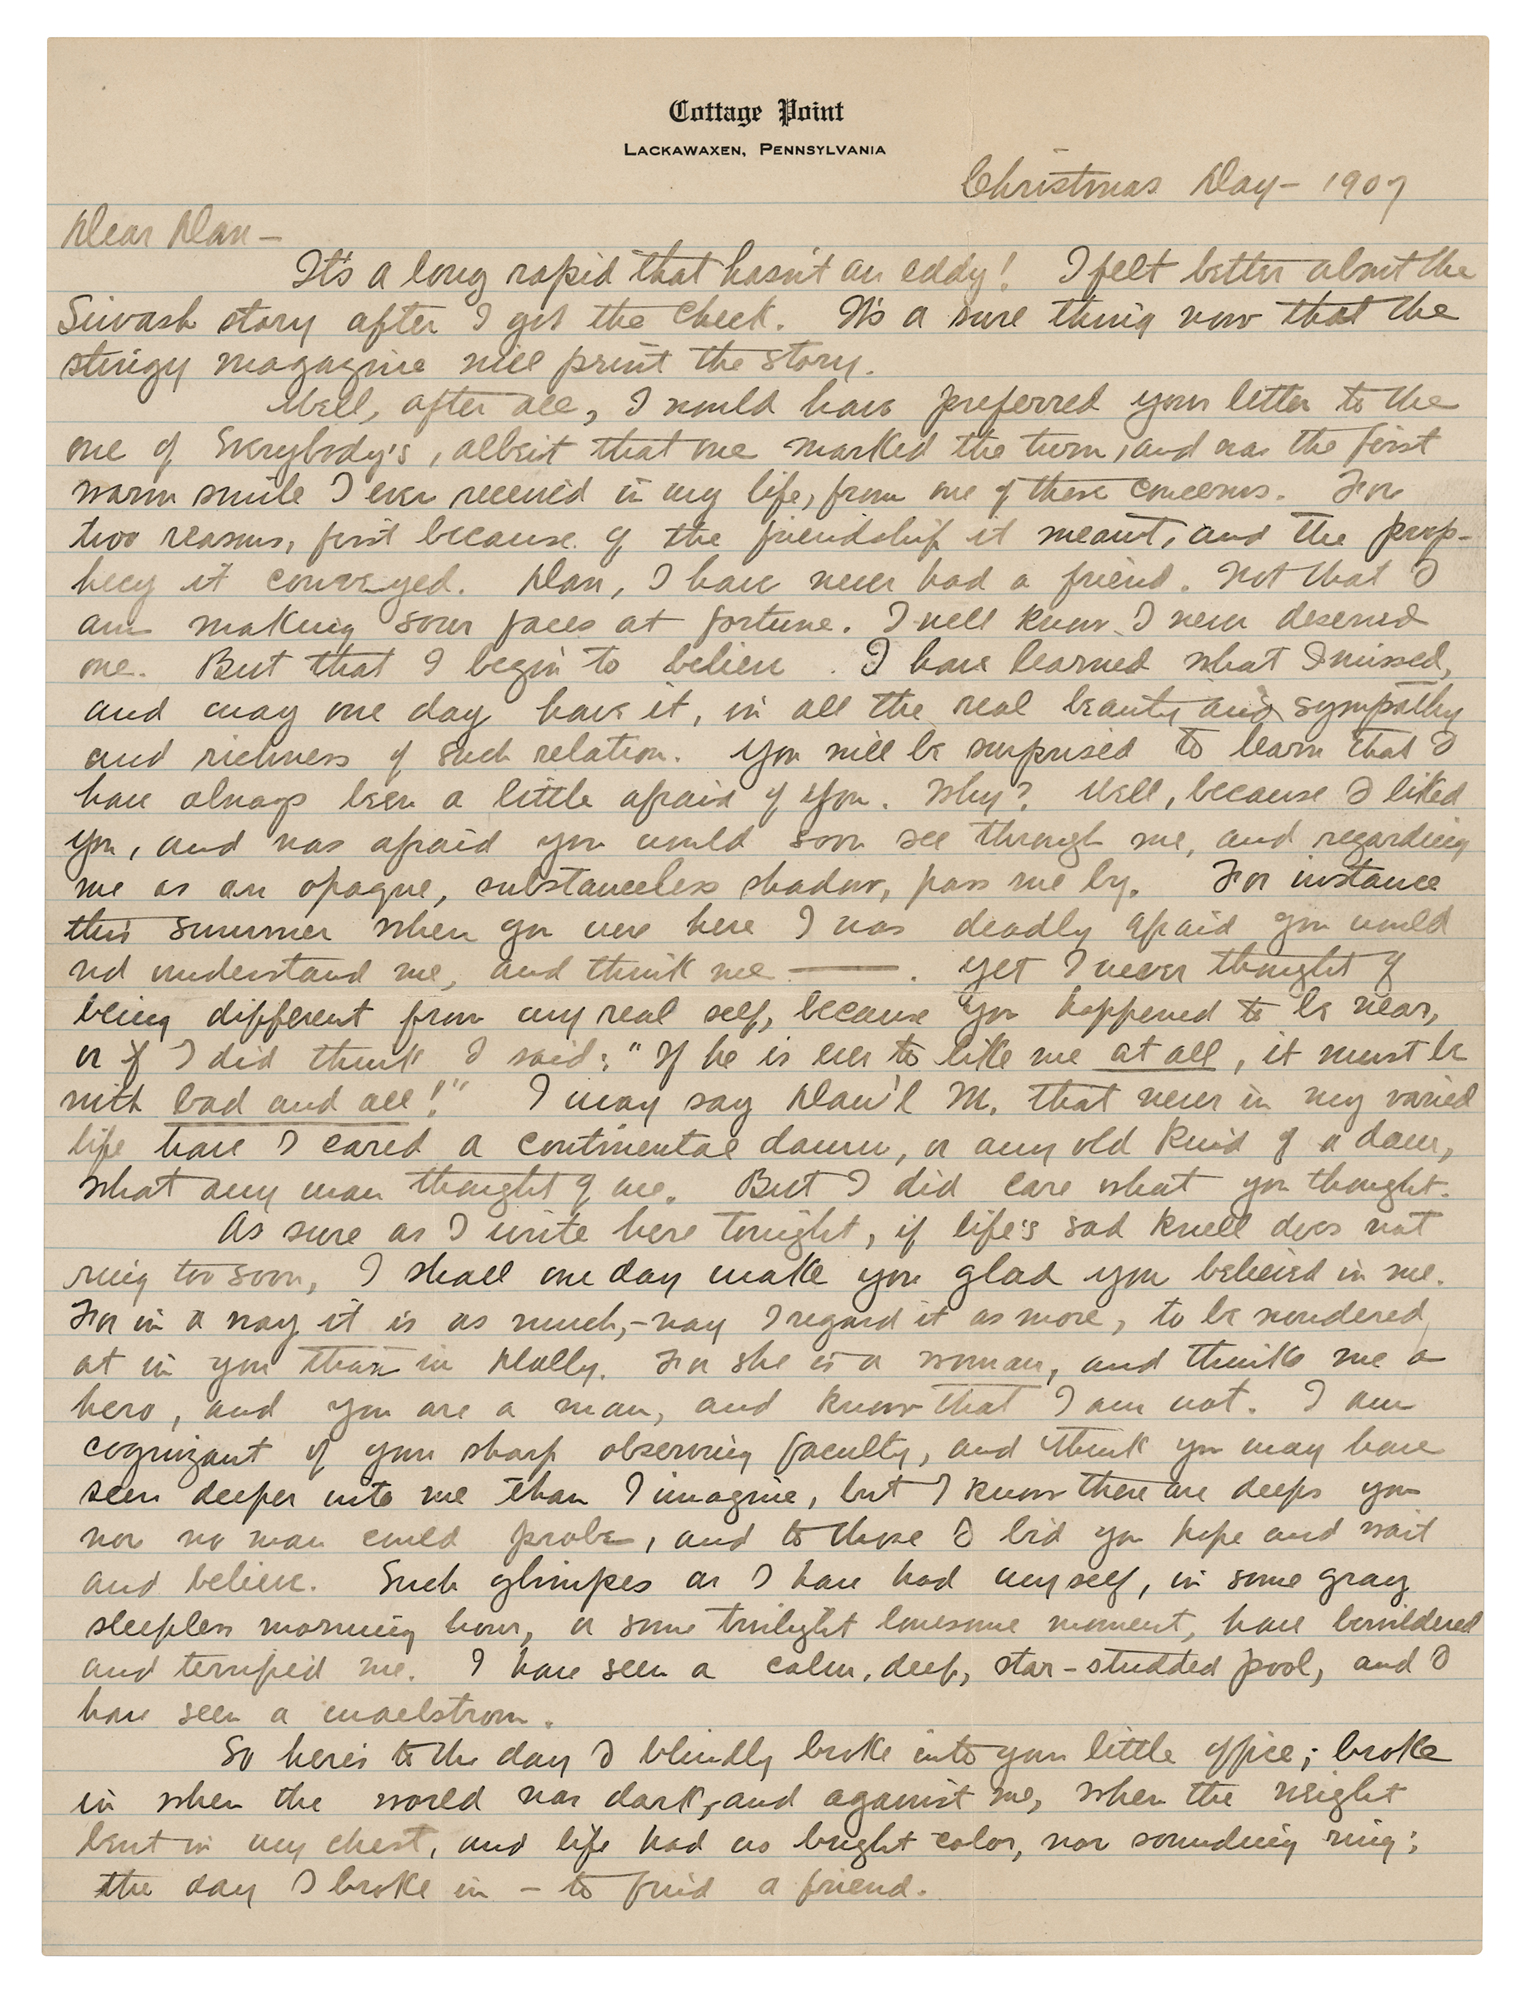 Cottage Point
Lackawaxen, Pennsylvania
Christmas Day - 1907
Dear Dan -
It's a long rapid that hasn't an eddy! I felt better about the
Siwash story after I got the check. It's a sure thing now that the
stingy magazine will print the story.
Well, after all, I would have preferred your letter to the
one of Everybody's, albeit that one marked the turn, and was the first
warm smile I ever received in my life, from one of these concerns. For
two reasons, first because of the friendship it meant, and the prop-
hecy it conveyed. Dan, I have never had a friend. Not that I
am making sour faces at fortune. I well know I never deserved
one. But that I begin to believe. I have learned what I missed,
and may one day have it, in all the real beauty and sympathy
and richness of such relation. You will be surprised to learn that I
have always been a little afraid of you. Why? Well, because I liked
you, and was afraid you would soon see through me, and regarding
me as an opaque, substanceless shadow, pass me by. For instance
this summer when you were here I was deadly afraid you would
not understand me, and think me ———. Yet I never thought of
being different from my real self, because you happened to be near,
or if I did think I said: "If he is ever to like me at all, it must be
with bad and all!" I may say Dan'l M. that never in my varied
life have I cared a continental damn, or any old kind of a dam,
what any man thought of me. But I did care what you thought.
As sure as I write here tonight, if life's sad knell does not
ring too soon, I shall one day make you glad you believed in me.
For in a way it is as much, - nay I regard it as more, to be wondered
at in you than in Dolly. For she is a woman, and thinks me a
hero, and you are a man, and know that I am not. I am
cognizant of your sharp observing faculty, and think you may have
seen deeper into me than I imagine, but I know there are deeps you
nor no man could probe, and to those I bid you hope and wait
and believe. Such glimpses as I have had myself, in some gray
sleepless morning hour, or some twilight lonesome moment, have bewildered
and terrified me. I have seen a calm, deep, star-studded pool, and I
have seen a maelstrom.
So here's to the day I blindly broke into your little office; broke
in when the world was dark, and against me, when the weight
bent in my chest, and life had no bright color, nor sounding ring;
the day I broke in - to find a friend.